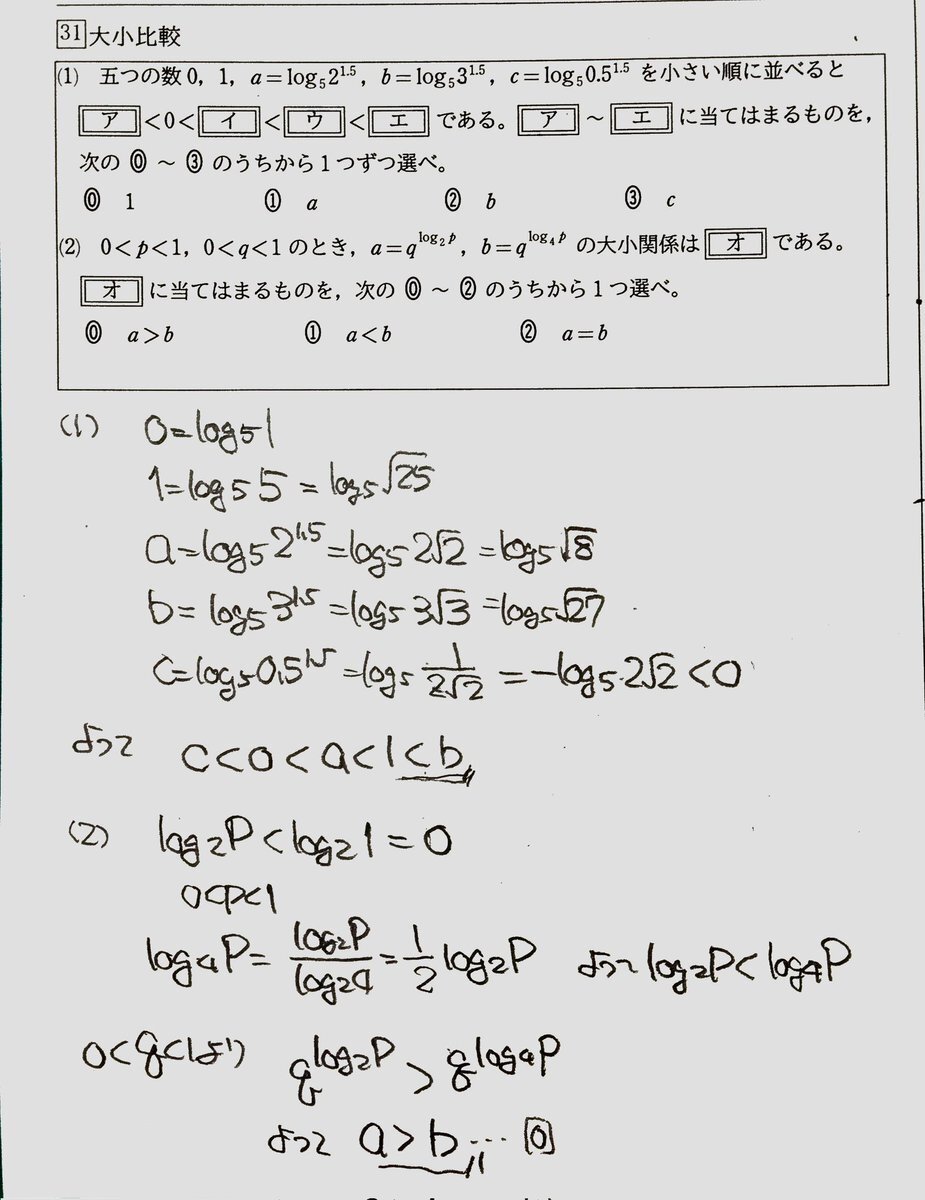 31 大小比較
(1) 五つの数 0, 1, a=log₅2^1.5, b=log₅3^1.5, c=log₅0.5^1.5 を小さい順に並べると
ア <0< イ < ウ < エ である。 ア ～ エ に当てはまるものを,
次の ⓪ ～ ③ のうちから1つずつ選べ。
⓪ 1 ① a ② b ③ c
(2) 0<p<1, 0<q<1 のとき, a=q^log₂p, b=q^log₄p の大小関係は オ である。
オ に当てはまるものを, 次の ⓪ ～ ② のうちから1つ選べ。
⓪ a>b ① a<b ② a=b
(1) 0=log₅1
1=log₅5=log₅√25
a=log₅2^1.5=log₅2√2=log₅√8
b=log₅3^1.5=log₅3√3=log₅√27
c=log₅0.5^1.5=log₅1/2√2=-log₅2√2<0
よって c<0<a<1<b
(2) log₂p<log₂1=0
0<p<1
log₄p=log₂p/log₂4=1/2log₂p よって log₂p<log₄p
0<q<1より q^log₂p>q^log₄p
よって a>b … 0